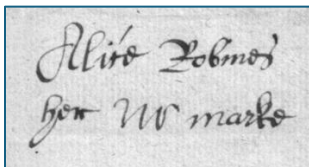 Alice Robines
her M marke